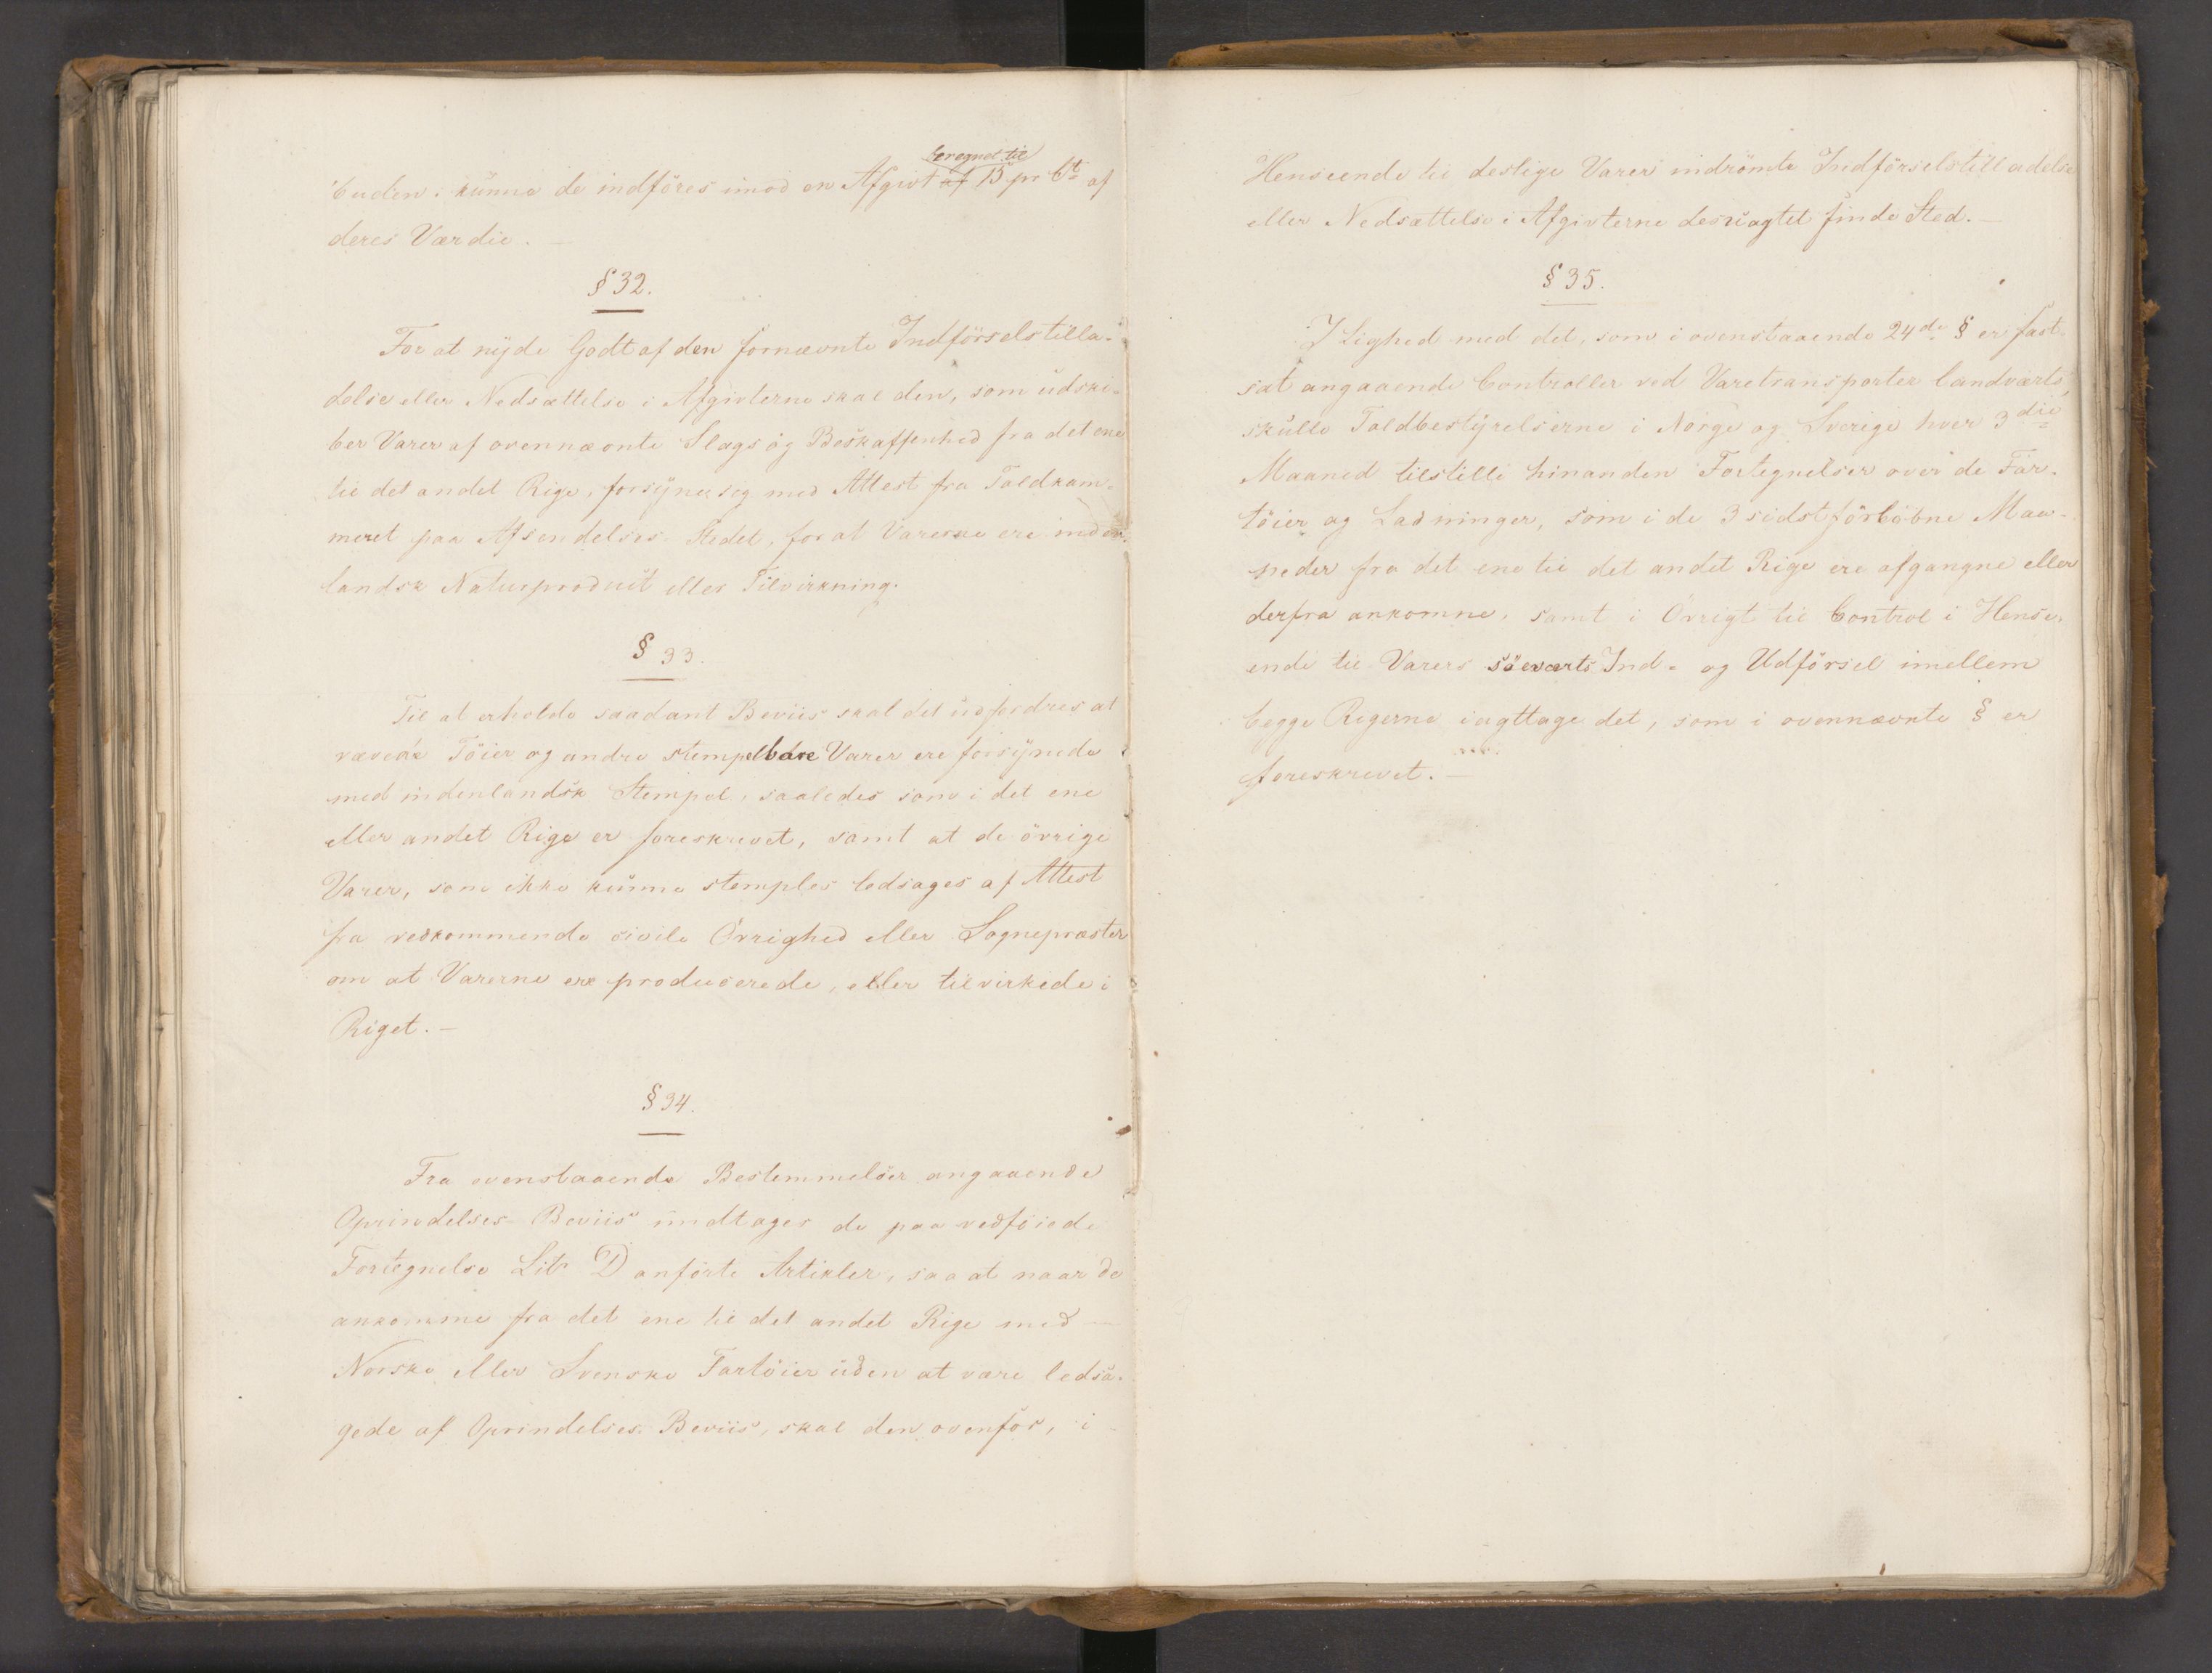 buden. kunne de indföres imod en Afgivt af beregnet til 15 pr Ct. af
deres Værdie. —
§ 32.
For at nyde Godt af den fornævnte Indförselstilla-
delse eller Nedsættelse i Afgivterne skal den, som udski-
ber Varer af ovennævnte Slags og Beskaffenhed fra det ene
til det andet Rige, forsyne sig med Attest fra Toldkam-
meret paa Afsendelses Stedet, for at Varerne ere inden-
landsk Naturproduct eller Tilvirkning.
§ 33.
Til at erholde saadant Beviis skal det udfordres at
vævede Töier og andre stempelbare Varer ere forsynede
med indenlandsk Stempel, saaledes som i det ene
eller andet Rige er foreskrevet, samt at de övrige
Varer, som ikke kunne stemples ledsages af Attest
fra vedkommende civile Övrighed eller Sognepræster
om at Varerne ere producerede, eller tilvirkede i
Riget. —
§ 34.
Fra ovenstaaende Bestemmelser angaaende
Oprindelses-Beviis undtages de paa vedföiede
Fortegnelse Litr D anförte Artikler, saa at naar de
ankomme fra det ene til det andet Rige med —
Norske eller Svenske Fartöier uden at være ledsa-
gede af Oprindelses-Beviis, skal den ovenfor, i
Henseende til deslige Varer indrömte Indförselstilladelse
eller Nedsættelse i Afgivterne desuagtet finde Sted. —
§ 35.
I Lighed med det, som i ovenstaaende 24de § er fast-
sat angaaende Controller ved Varetransporter landværts
skulle Toldbestyrelserne i Norge og Sverige hver 3die
Maaned tilstille hinanden Fortegnelser over de Far-
töier og Ladninger, som i de 3 sidstforlöbne Maa-
neder fra det ene til det andet Rige ere afgangne eller
derfra ankomne, samt i Övrigt til Control i Hense-
ende til Varers söeværts Ind- og Udförsel imellem
begge Rigerne iagttage det, som i ovennævnte § er
foreskrevet. —